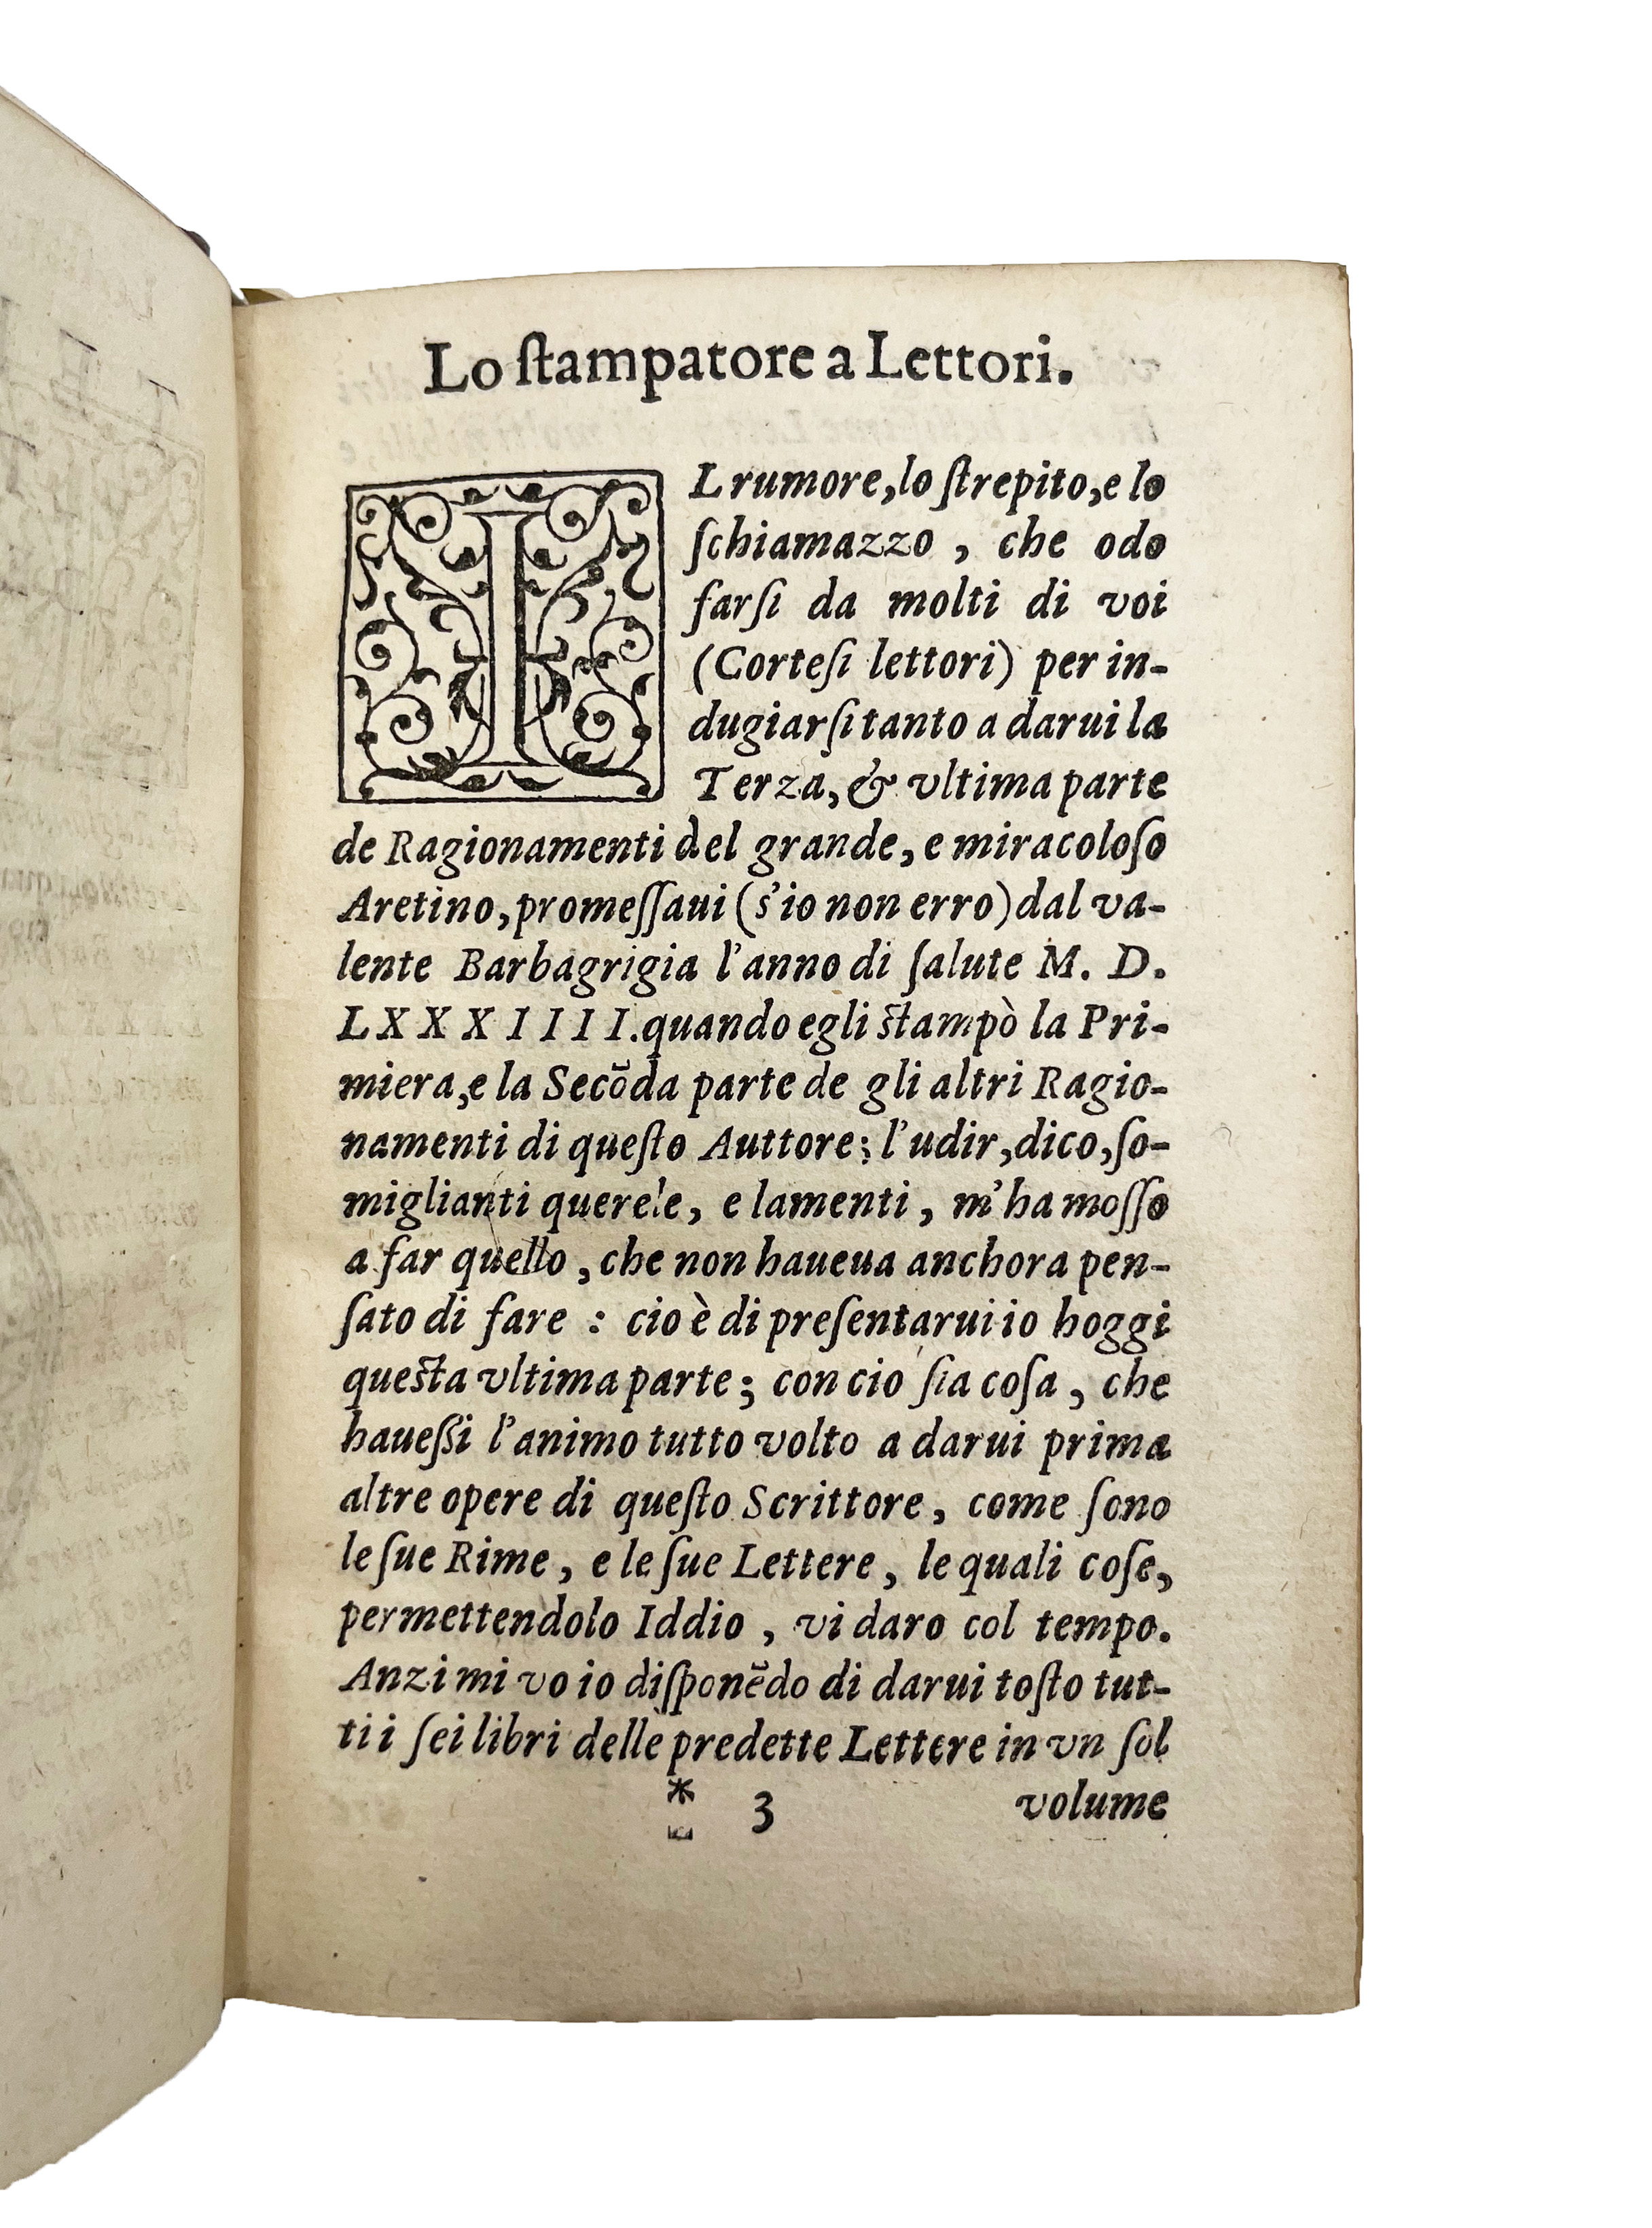 Lo ſtampatore a Lettori.
IL rumore, lo ſtrepito, e lo
ſchiamazzo, che odo
farſi da molti di voi
(Corteſi lettori) per in-
dugiarſi tanto a darui la
Terza, & vltima parte
de Ragionamenti del grande, e miracoloſo
Aretino, promeſſaui (s'io non erro) dal va-
lente Barbagrigia l'anno di ſalute M. D.
LXXXIIII. quando egli ſtampò la Pri-
miera, e la Secõda parte de gli altri Ragio-
namenti di queſto Auttore; l'udir, dico, ſo-
miglianti querele, e lamenti, m'ha moſſo
a far quello, che non haueua anchora pen-
ſato di fare : cio è di preſentarui io hoggi
queſta vltima parte; con cio ſia coſa, che
haueßi l'animo tutto volto a darui prima
altre opere di queſto Scrittore, come ſono
le ſue Rime, e le ſue Lettere, le quali coſe,
permettendolo Iddio, vi daro col tempo.
Anzi mi vo io diſponẽdo di darui toſto tut-
ti i ſei libri delle predette Lettere in vn ſol
* 3 volume